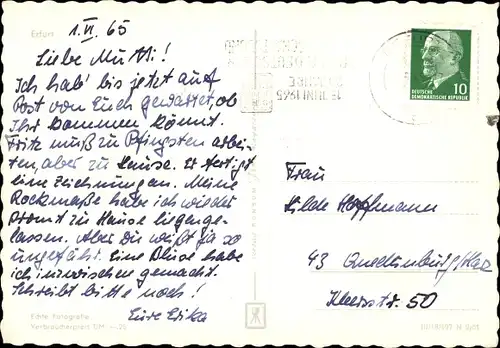 Erfurt
1. VI. 65
Liebe Mutti!
Ich hab' bis jetzt auf
Post von Euch gewartet, ob
Ihr kommen könnt.
Fritz muß zu Pfingsten arbei-
ten, aber zu Hause. Er fertigt
eine Zeichnung an. Meine
Rockmaße habe ich wieder
prompt zu Hause liegenge-
lassen. Aber Du weißt ja so
ungefähr. Eine Bluse habe
ich inzwischen gemacht.
Schreibt bitte noch!
Eure Erika
Echte Fotografie
Verbraucherpreis DM
DEUTSCHE
DEMOKRATISCHE REPUBLIK
10
JUNI 1965
Frau
Hilde Hoffmann
43 Quedlinburg/Harz
50